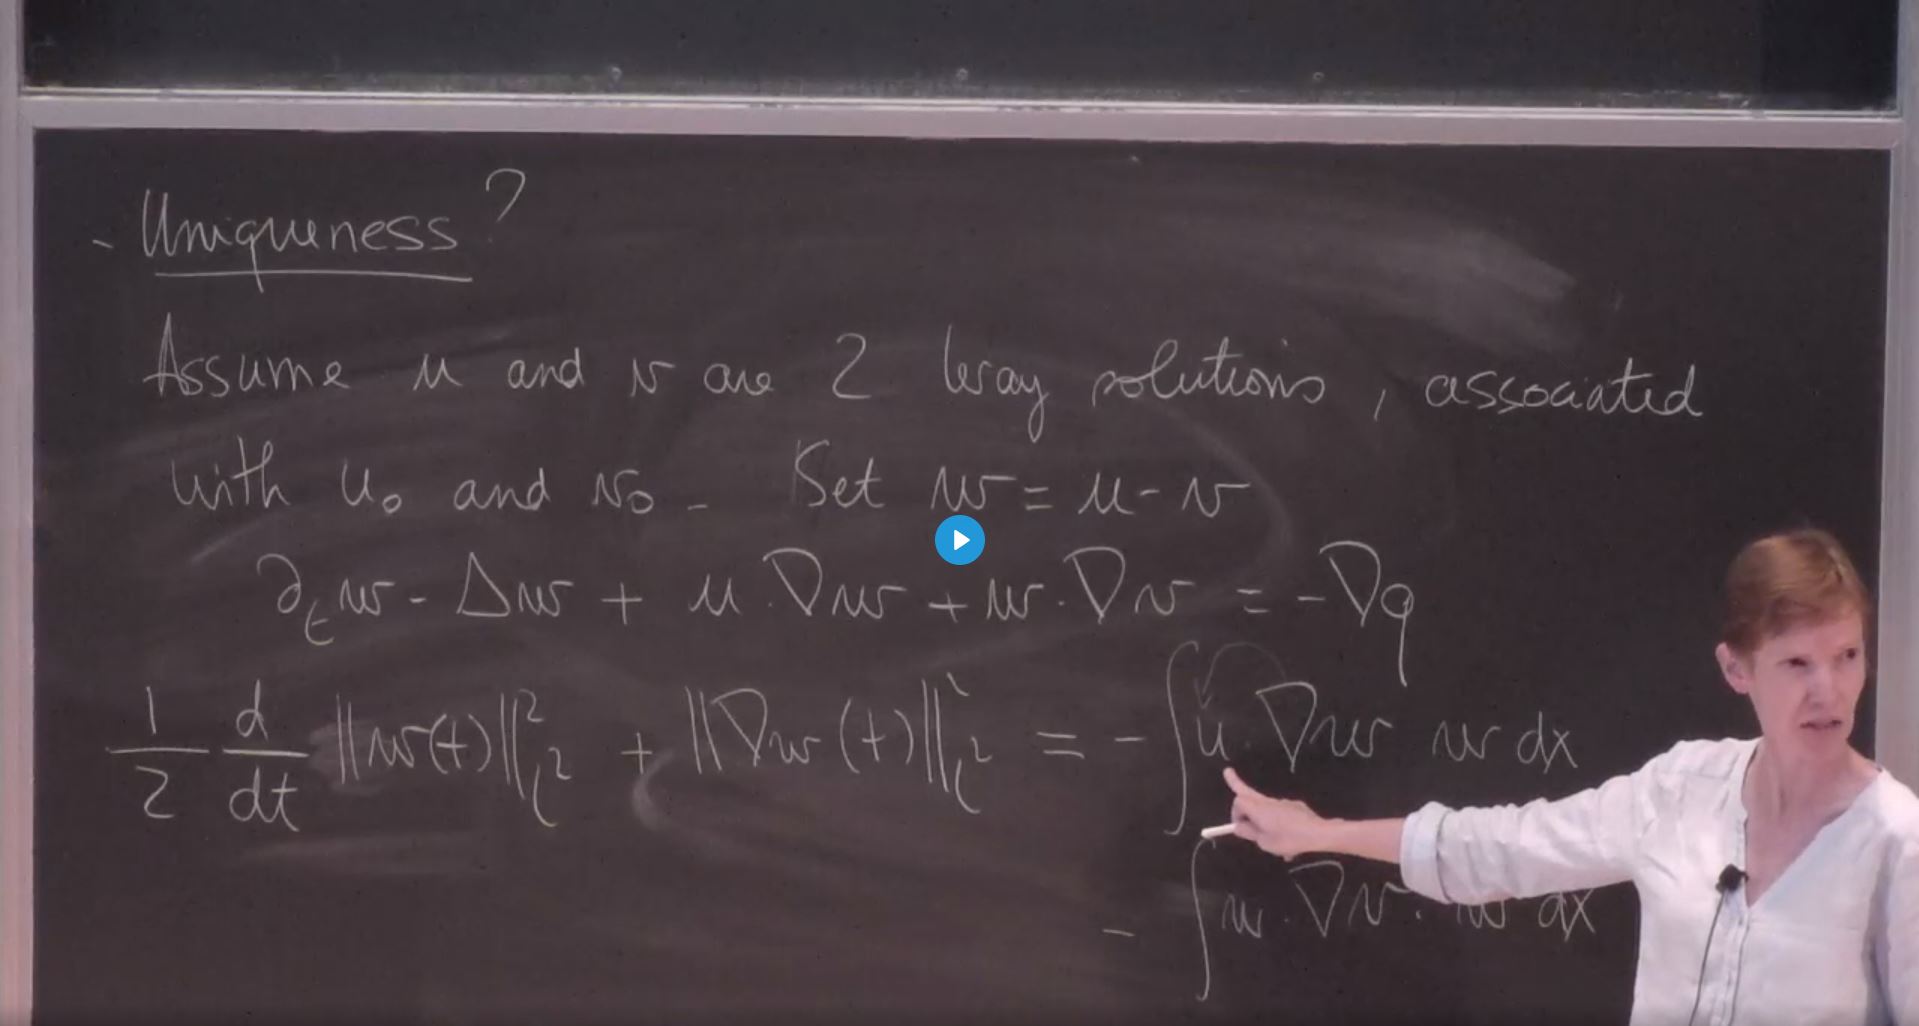 - Uniqueness?
Assume u and v are 2 Leray solutions, associated
with u₀ and v₀ - Set w = u - v
∂ₜw - Δw + u·∇w + w·∇v = -∇q
1/2 d/dt ||w(t)||²_L² + ||∇w(t)||²_L² = - ∫ u·∇w w dx
- ∫ w·∇v · w dx